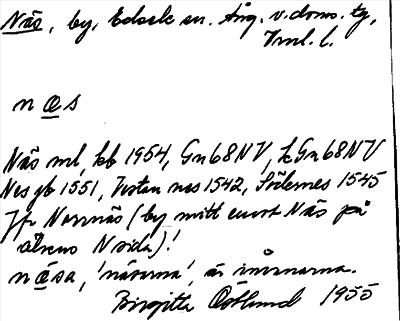 Näs, by, Edsele sn. Ång. v. doms. tg,
Vml. l.
n a s
Näs ml, kb 1954, Gn 68 NV, kGn 68 NV
Nes jb 1551, Vestan nas 1542, Södernes 1545
Jfr Norrnäs (by mitt emot Näs på
älvens N sida)!
n a sa, 'näsarna', är invånarna.
Birgitta Östlund 1955